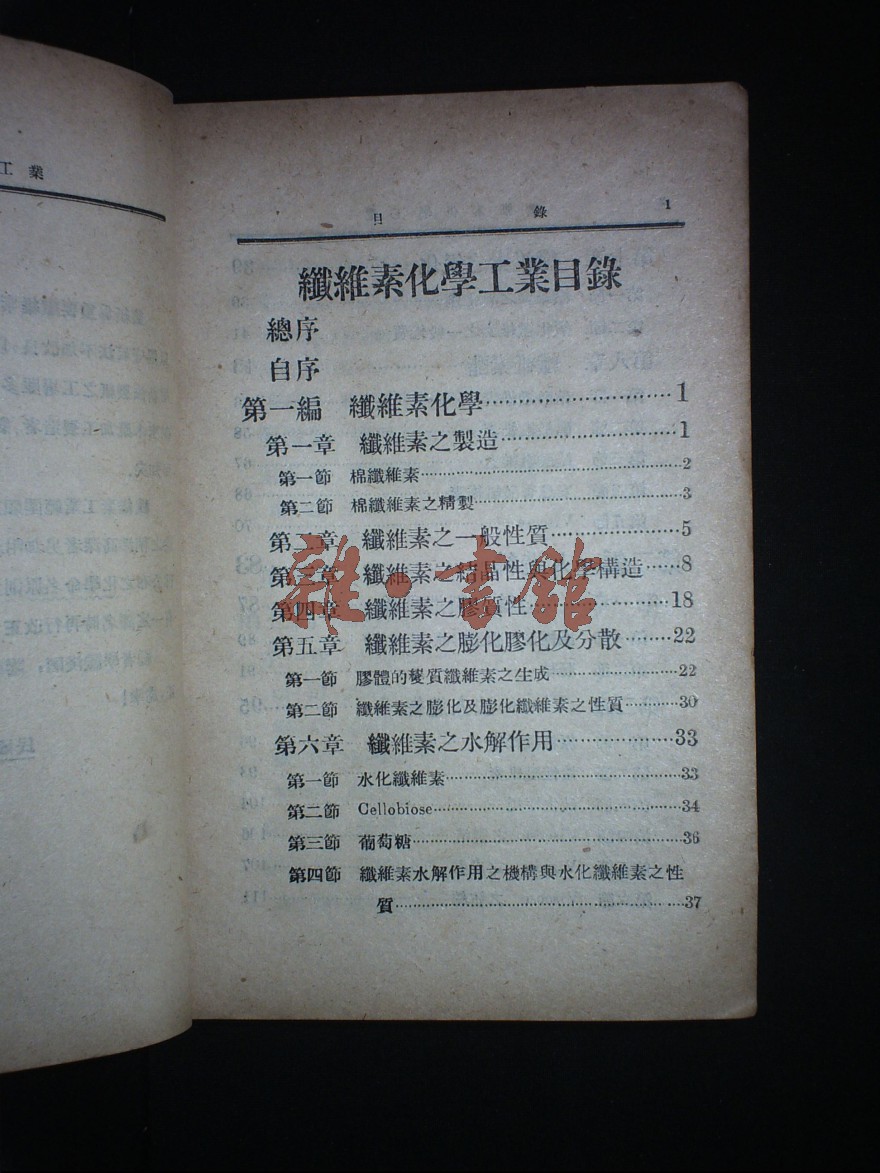 工業
目錄 1
纖維素化學工業目錄
總序
自序
第一編 纖維素化學……………………1
第一章 纖維素之製造……………………1
第一節 棉纖維素……………………2
第二節 棉纖維素之精製……………………3
第二章 纖維素之一般性質……………………5
第三章 纖維素之結晶性與化學構造……8
第四章 纖維素之膠質性……………………18
第五章 纖維素之膨化膠化及分散………22
第一節 膠體的變質纖維素之生成……………………22
第二節 纖維素之膨化及膨化纖維素之性質…………30
第六章 纖維素之水解作用……………………33
第一節 水化纖維素……………………33
第二節 Cellobiose……………………34
第三節 葡萄糖……………………36
第四節 纖維素水解作用之機構與水化纖維素之性
質……………………37
雜·書館